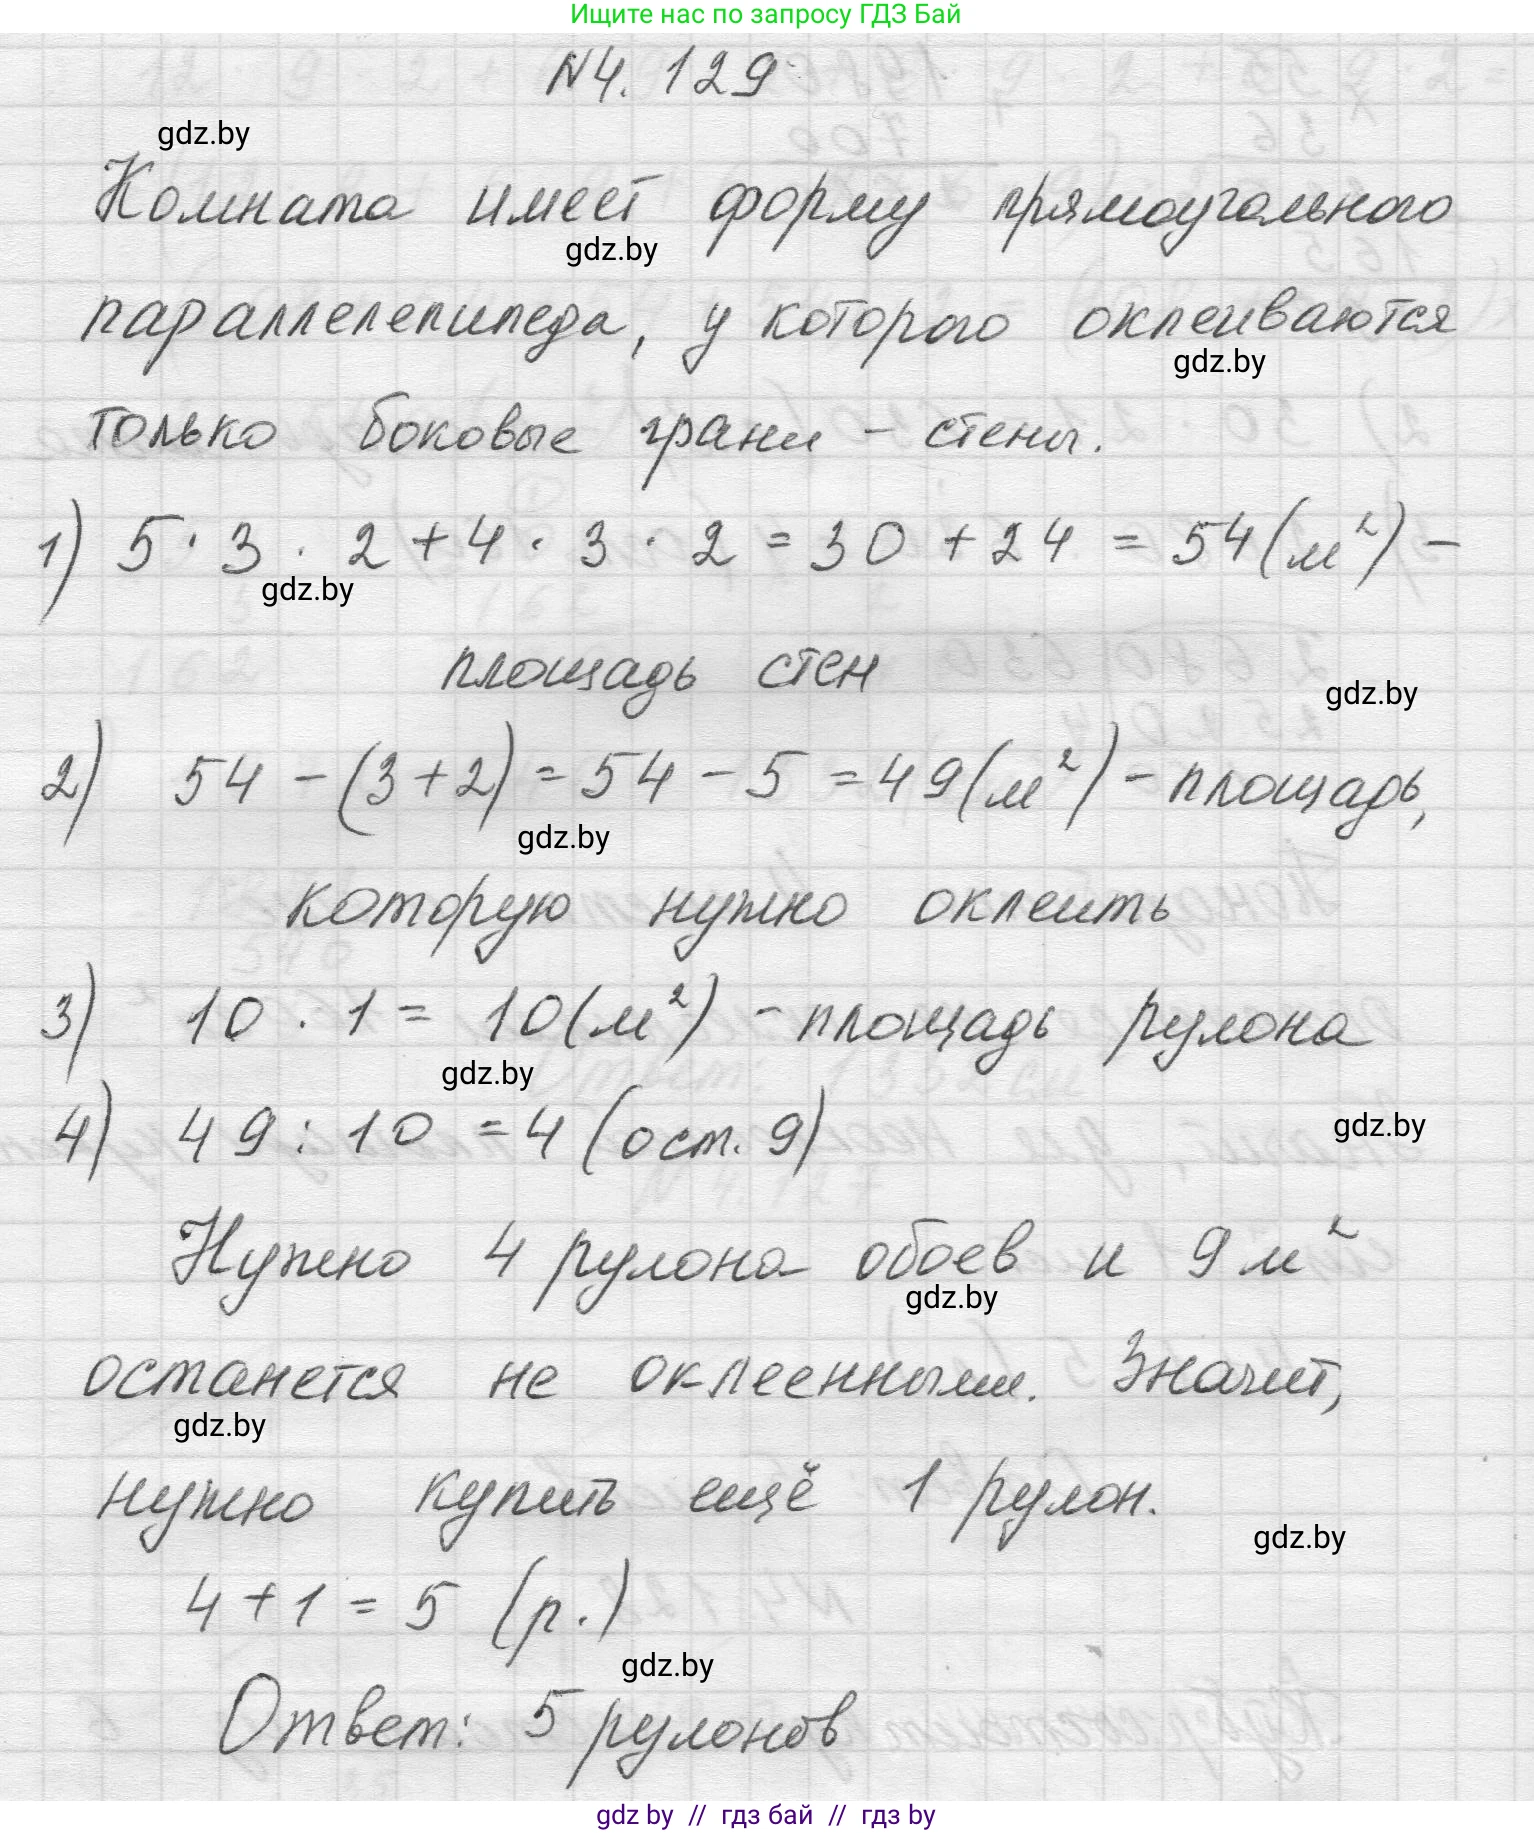 Ищите нас по запросу ГДЗ Бай
N4. 129
gdz.by
Комната имеет форму прямоугольного
gdz.by
параллелепипеда, у которого оклеиваются
gdz.by
только боковые грани – стены.
1) 5 · 3 · 2 + 4 · 3 · 2 = 30 + 24 = 54 (м²) –
gdz.by
площадь стен
gdz.by
2) 54 – (3 + 2) = 54 – 5 = 49 (м²) – площадь,
gdz.by
которую нужно оклеить
3) 10 · 1 = 10 (м²) – площадь рулона
gdz.by
4) 49 : 10 = 4 (ост. 9)
gdz.by
Нужно 4 рулона обоев и 9 м²
gdz.by
останется не оклеенными. Значит,
gdz.by
нужно купить ещё 1 рулон.
gdz.by
4 + 1 = 5 (р.)
gdz.by
Ответ: 5 рулонов
gdz by // гдз бай // гдз by